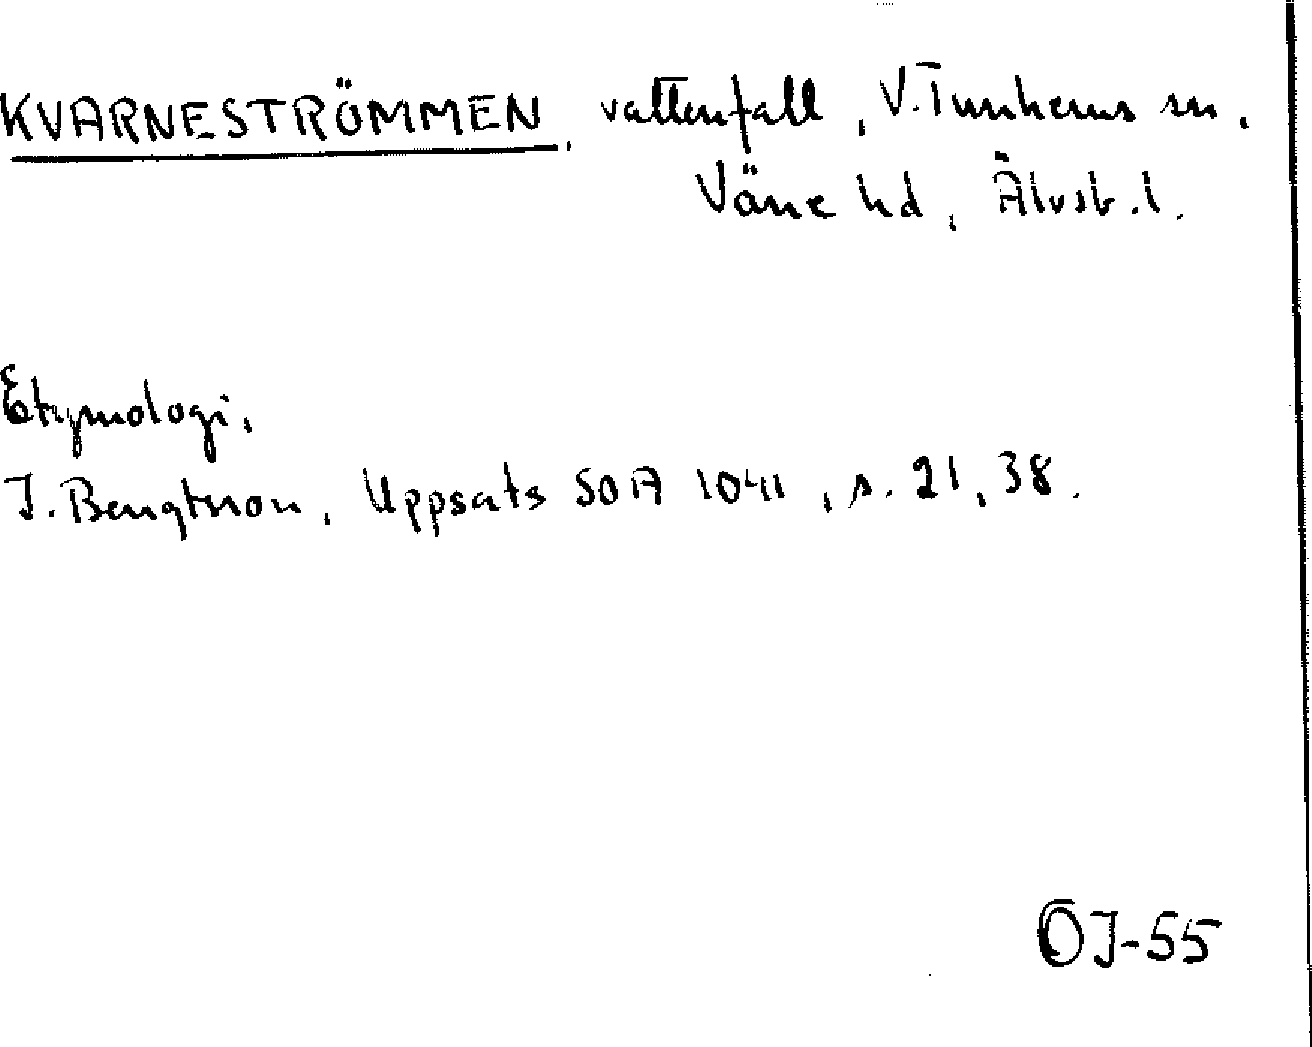 KVARNESTRÖMMEN, vattenfall, V. Tunhems sn.
Väne hd, Älvsb. l.
Etymologi.
I. Bengtsson, Uppsats SOA 1041, s. 21, 38.
ÖJ-55